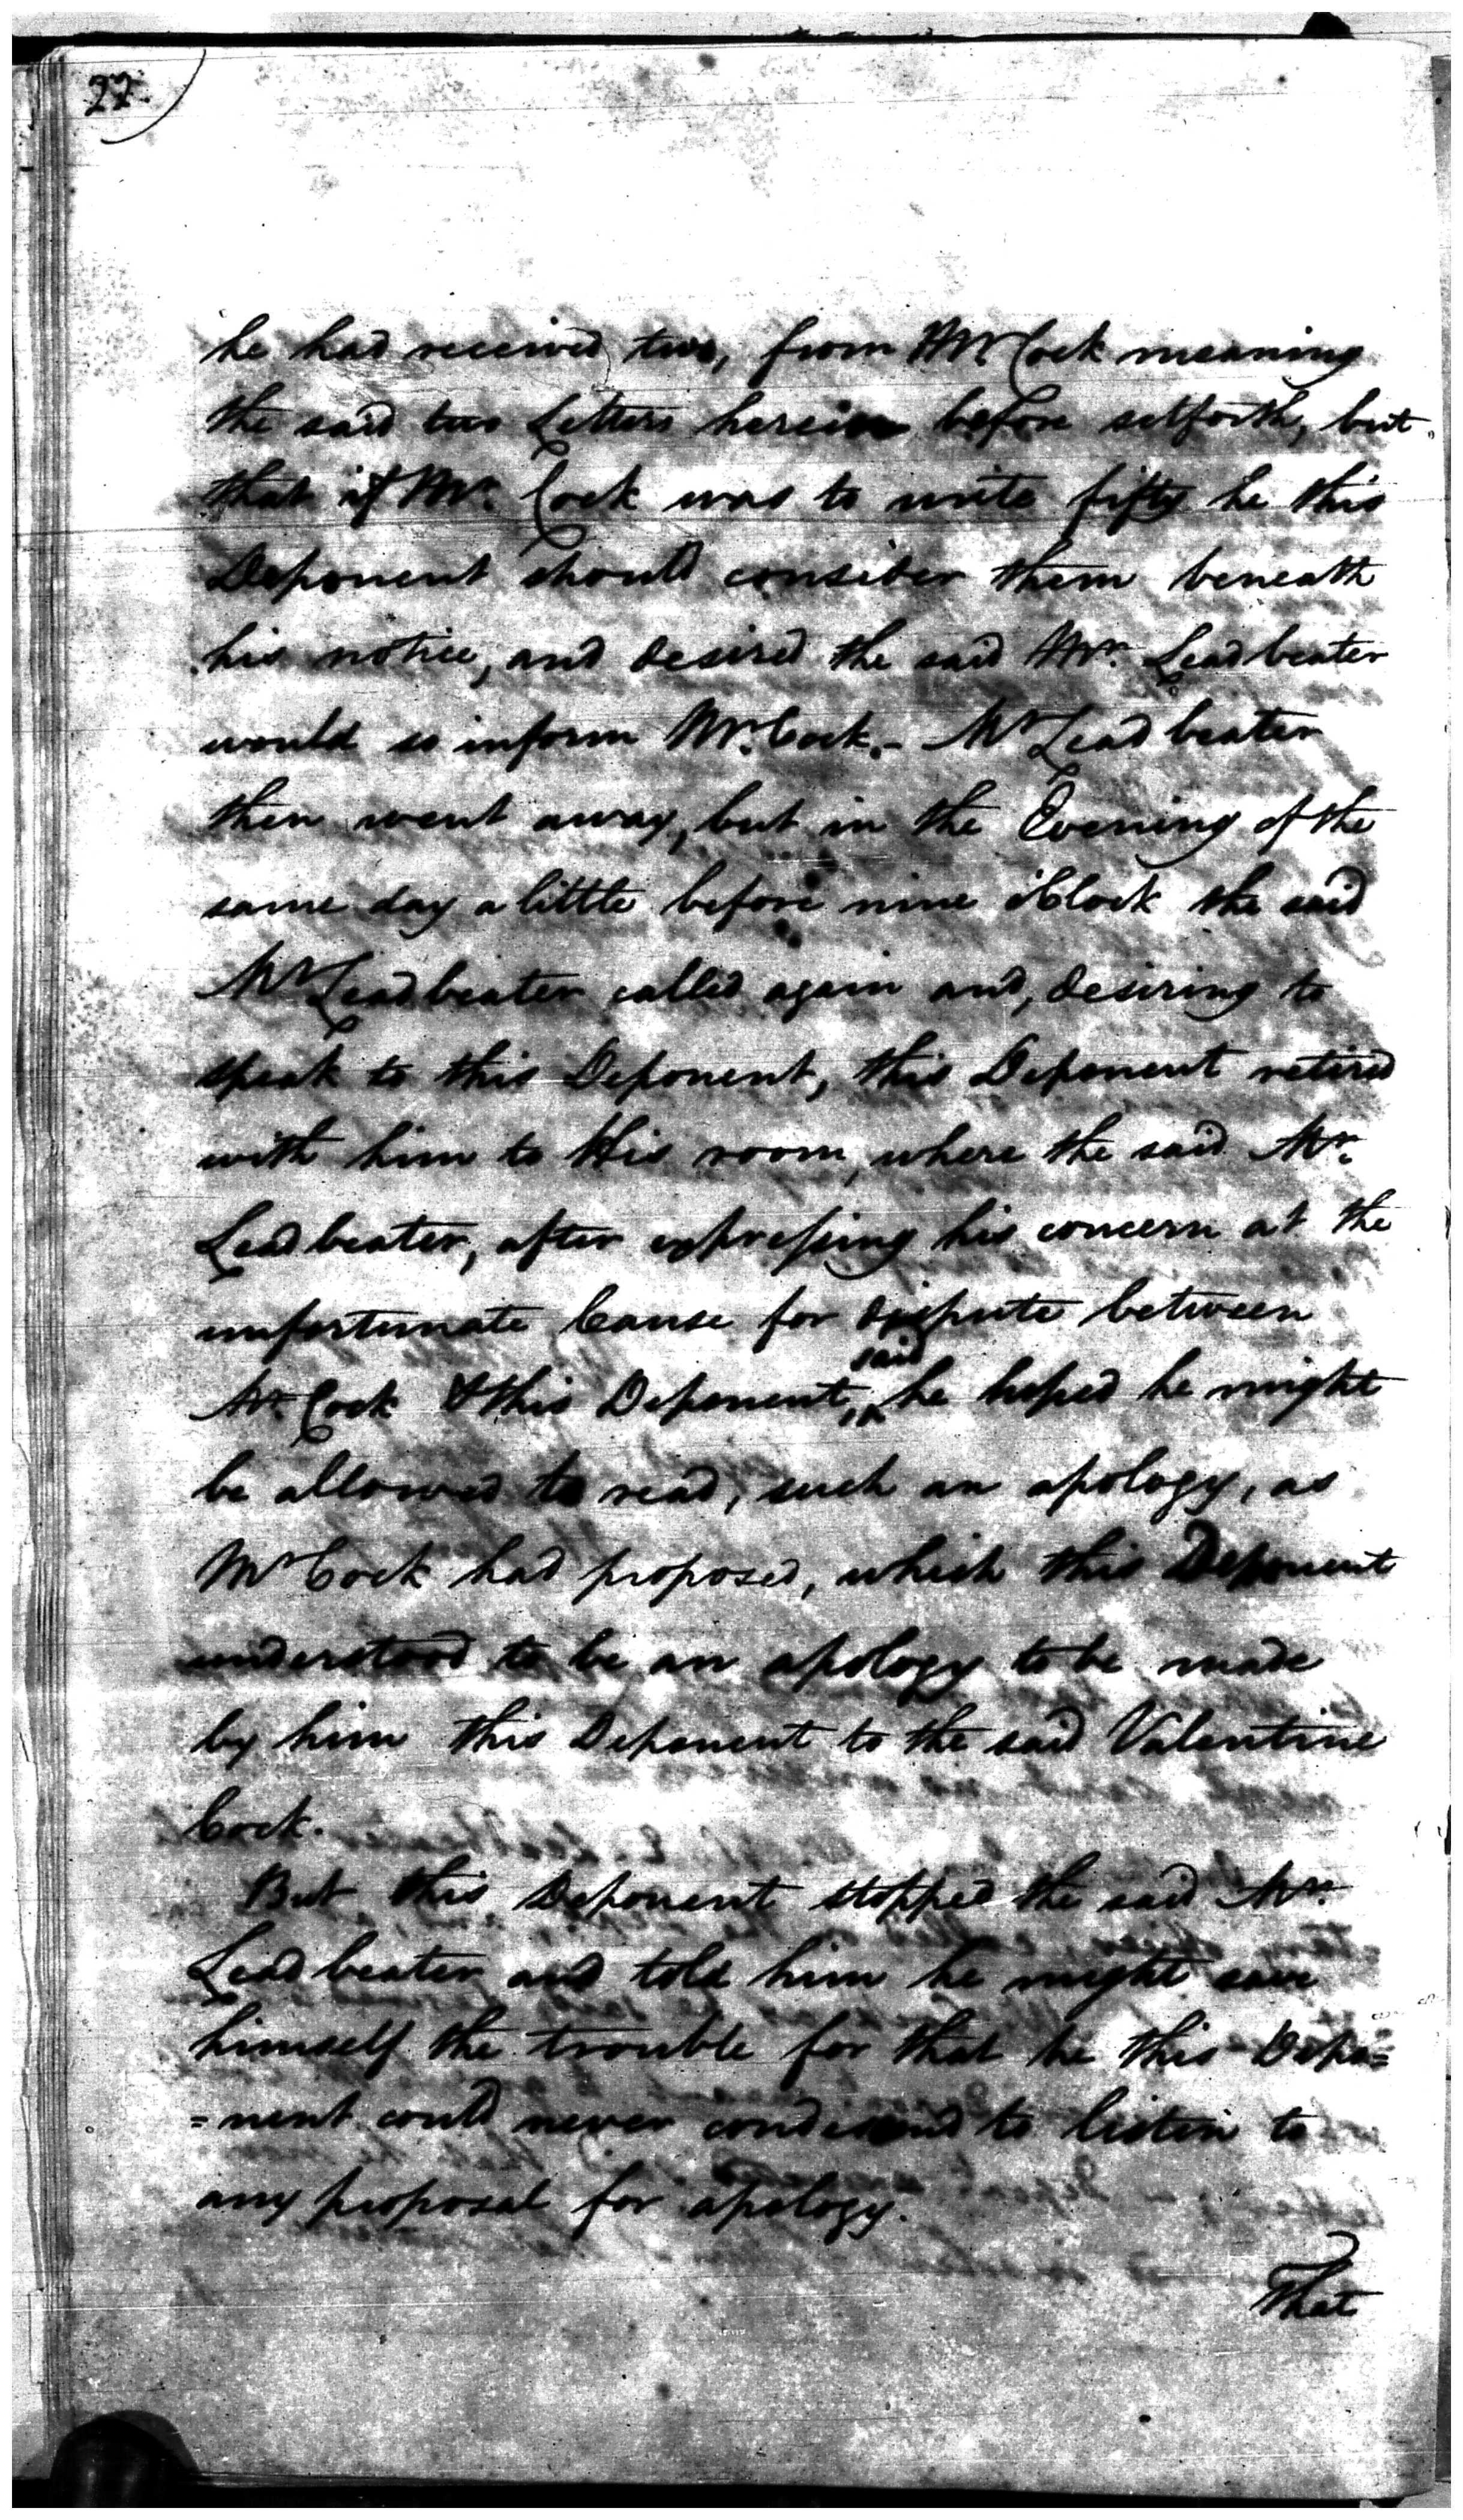 22
he had received two, from Mr. Cock meaning
the said two Letters herein before setforth, but
that if Mr. Cock was to write fifty he this
Deponent should consider them beneath
his notice, and desired the said Mr. Leadbeater
would so inform Mr. Cock. - Mr Leadbeater
then went away, but in the Evening of the
same day a little before nine oClock the said
Mr Leadbeater called again and, desiring to
speak to this Deponent, this Deponent retired
with him to His room, where the said Mr.
Leadbeater, after expressing his concern at the
unfortunate Cause for dispute between
said
Mr. Cock & this Deponent, he hoped he might
be allowed to read, such an apology, as
Mr Cock had proposed, which this Deponent
understood to be an apology to be made
by him this Deponent to the said Valentine
Cock.
But this Deponent stopped the said Mr.
Leadbeater and told him he might save
himself the trouble for that he this Depo=
=nent could never condesend to listen to
any proposal for apology.
That